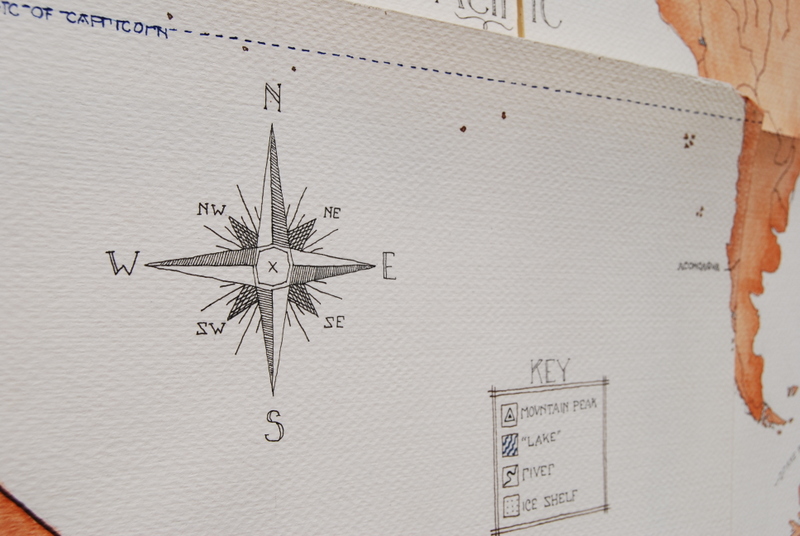 IC OF CAPRICORN
N
NW
NE
W
X
E
SW
SE
S
ACONCAGUA
KEY
MOUNTAIN PEAK
"LAKE"
RIVER
ICE SHELF